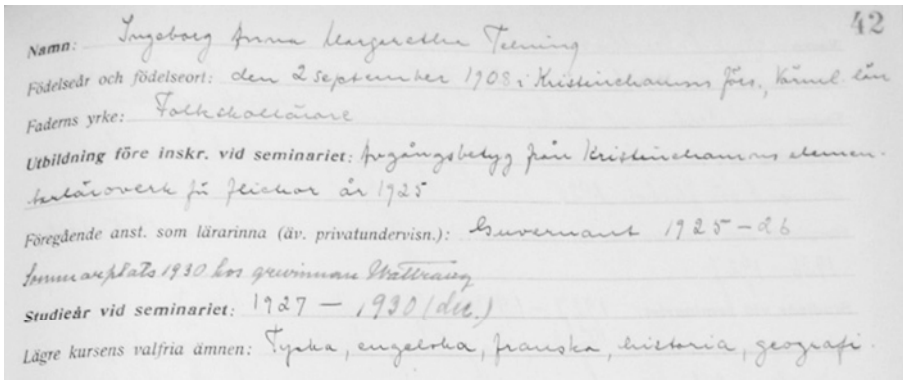 42
Namn: Ingeborg Anna Margaretha Telning
Födelseår och födelseort: den 2 september 1908 i Kristinehamns förs., Värml. län
Faderns yrke: Folkskollärare
Utbildning före inskr. vid seminariet: Avgångsbetyg från Kristinehamns elemen-
tarläroverk för flickor år 1925
Föregående anst. som lärarinna (äv. privatundervisn.): Guvernant 1925-26
Sommarplats 1930 hos grevinnan
Studieår vid seminariet: 1927 - 1930 (dec.)
Lägre kursens valfria ämnen: Tyska, engelska, franska, historia, geografi.